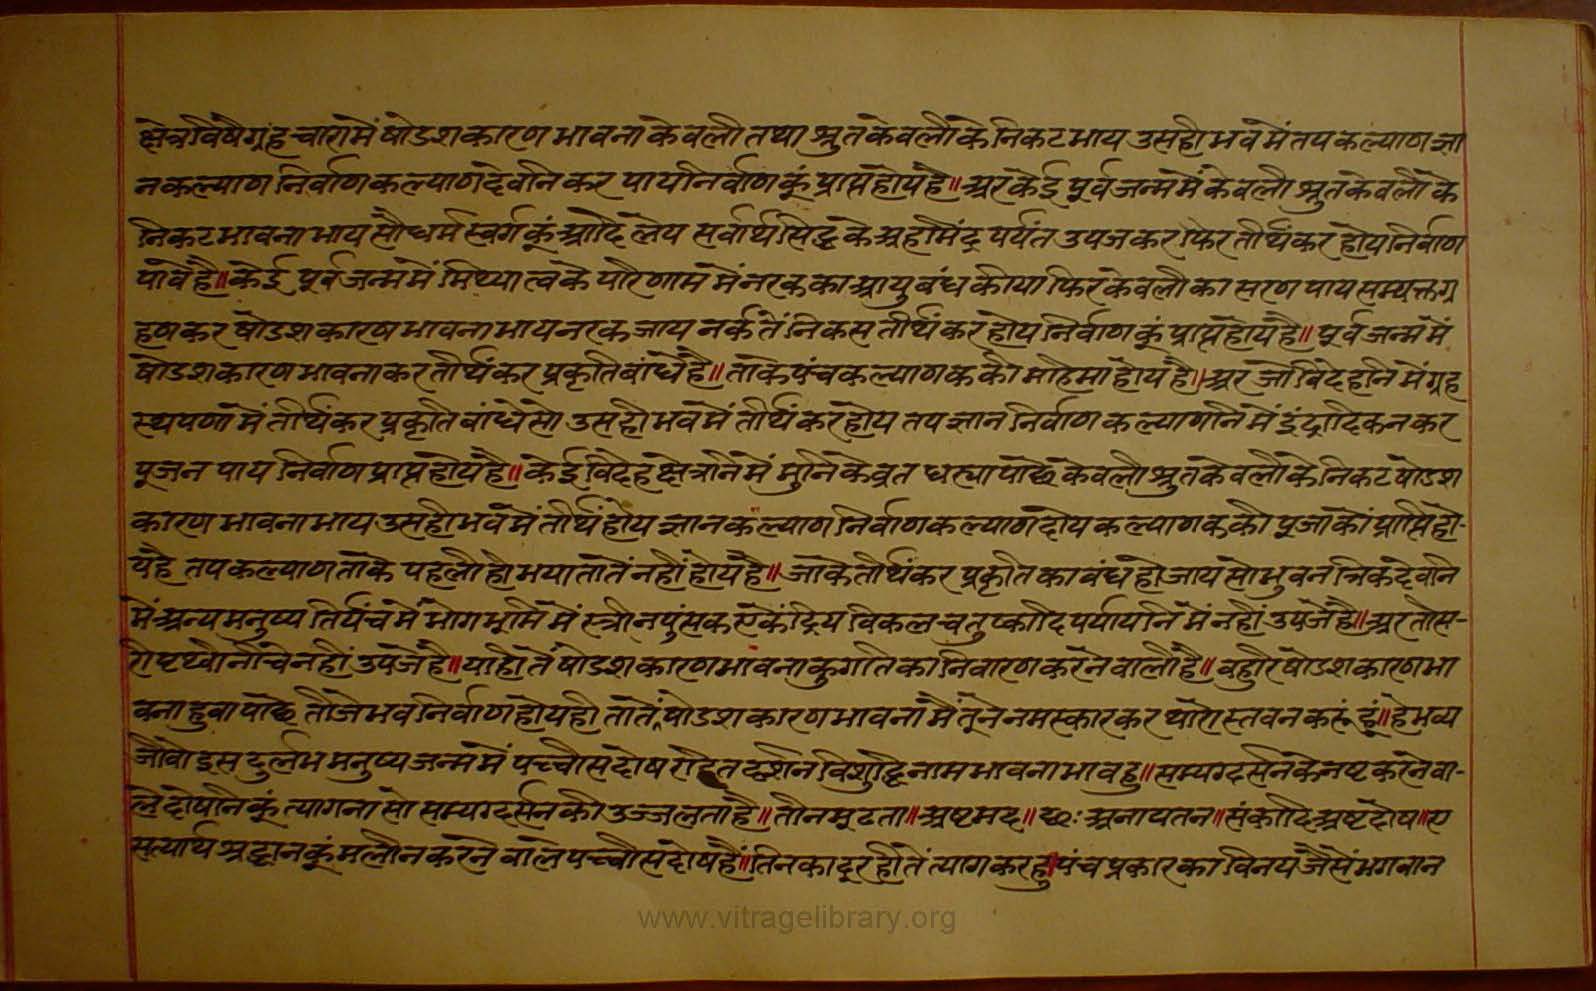 क्षेत्रविषैगृहचारामें षोडशकारण भावना केवली तथा श्रुतकेवली के निकट भाय उसही भव में तपकल्याण ज्ञा
न कल्याण निर्वाण कल्याण देवनि कर पाय निर्वाण कूं प्राप्त होय है॥ अर केई पूर्व जन्म में केवली श्रुतकेवली के
निकट भावना भाय सौधर्म स्वर्ग कूं आदि लेय सर्वार्थसिद्धि के अहमिंद्र पर्यंत उपज कर फिर तीर्थंकर होय निर्वाण
पावे है॥ केई पूर्व जन्म में मिथ्यात्व के परिणाम में नरक का आयु बंध कीया फिर केवली का सरण पाय सम्यक्त ग्र
हण कर षोडशकारण भावना भाय नरक जाय नर्क तें निकस तीर्थंकर होय निर्वाण कूं प्राप्त होय है॥ पूर्व जन्म में
षोडशकारण भावना कर तीर्थंकर प्रकृति बांधे है॥ ताके पंचकल्याणक की महिमा होय है॥ अर जो विदेहनि में गृह
स्थपणा में तीर्थंकर प्रकृति बांधे सो उसही भव में तीर्थंकर होय तप ज्ञान निर्वाण कल्याणनि में इंद्रादिकन कर
पूजन पाय निर्वाण प्राप्त होय है॥ केई विदेह क्षेत्रनि में मुनि के व्रत धर्या पीछे केवली श्रुतकेवली के निकट षोडश
कारण भावना भाय उसही भव में तीर्थं होय ज्ञान कल्याण निर्वाण कल्याण दोय कल्याणक की पूजा कों प्राप्ति हो-
य है तप कल्याण ताके पहली ही भया तातें नहीं होय है॥ जाके तीर्थंकर प्रकृति का बंध हो जाय सो भुवनत्रिक देवनि
में अन्य मनुष्य तिर्यंच में भोगभूमि में स्त्री नपुंसक एकेंद्रिय विकलचतुष्कादि पर्यायनि में नहीं उपजे है॥ अर तीस-
री पृथ्वी नीचे नहीं उपजे है॥ याही तें षोडशकारण भावना कुगति का निवारण करने वाली है॥ बहुरि षोडशकारण भा
वना हुवा पीछे तीजे भव निर्वाण होय ही तातें षोडशकारण भावना मैं तूनें नमस्कार कर थारो स्तवन करूं हूं॥ हे भव्य
जीवो इस दुर्लभ मनुष्य जन्म में पच्चीस दोष रहित दर्शन विशुद्धि नाम भावना भावहु॥ सम्यग्दर्सन के नष्ट करने वा-
ले दोषनि कूं त्यागना सो सम्यग्दर्सन की उज्जलता है॥ तीन मूढता॥ अष्ट मद॥ छः अनायतन॥ संकादि अष्ट दोष॥ ए
सत्यार्थ श्रद्धान कूं मलीन करने वाले पच्चीस दोष हैं॥ तिनका दूर ही तें त्याग करहु॥ पंच प्रकार का विनय जैसें भगवान
www.vitragelibrary.org